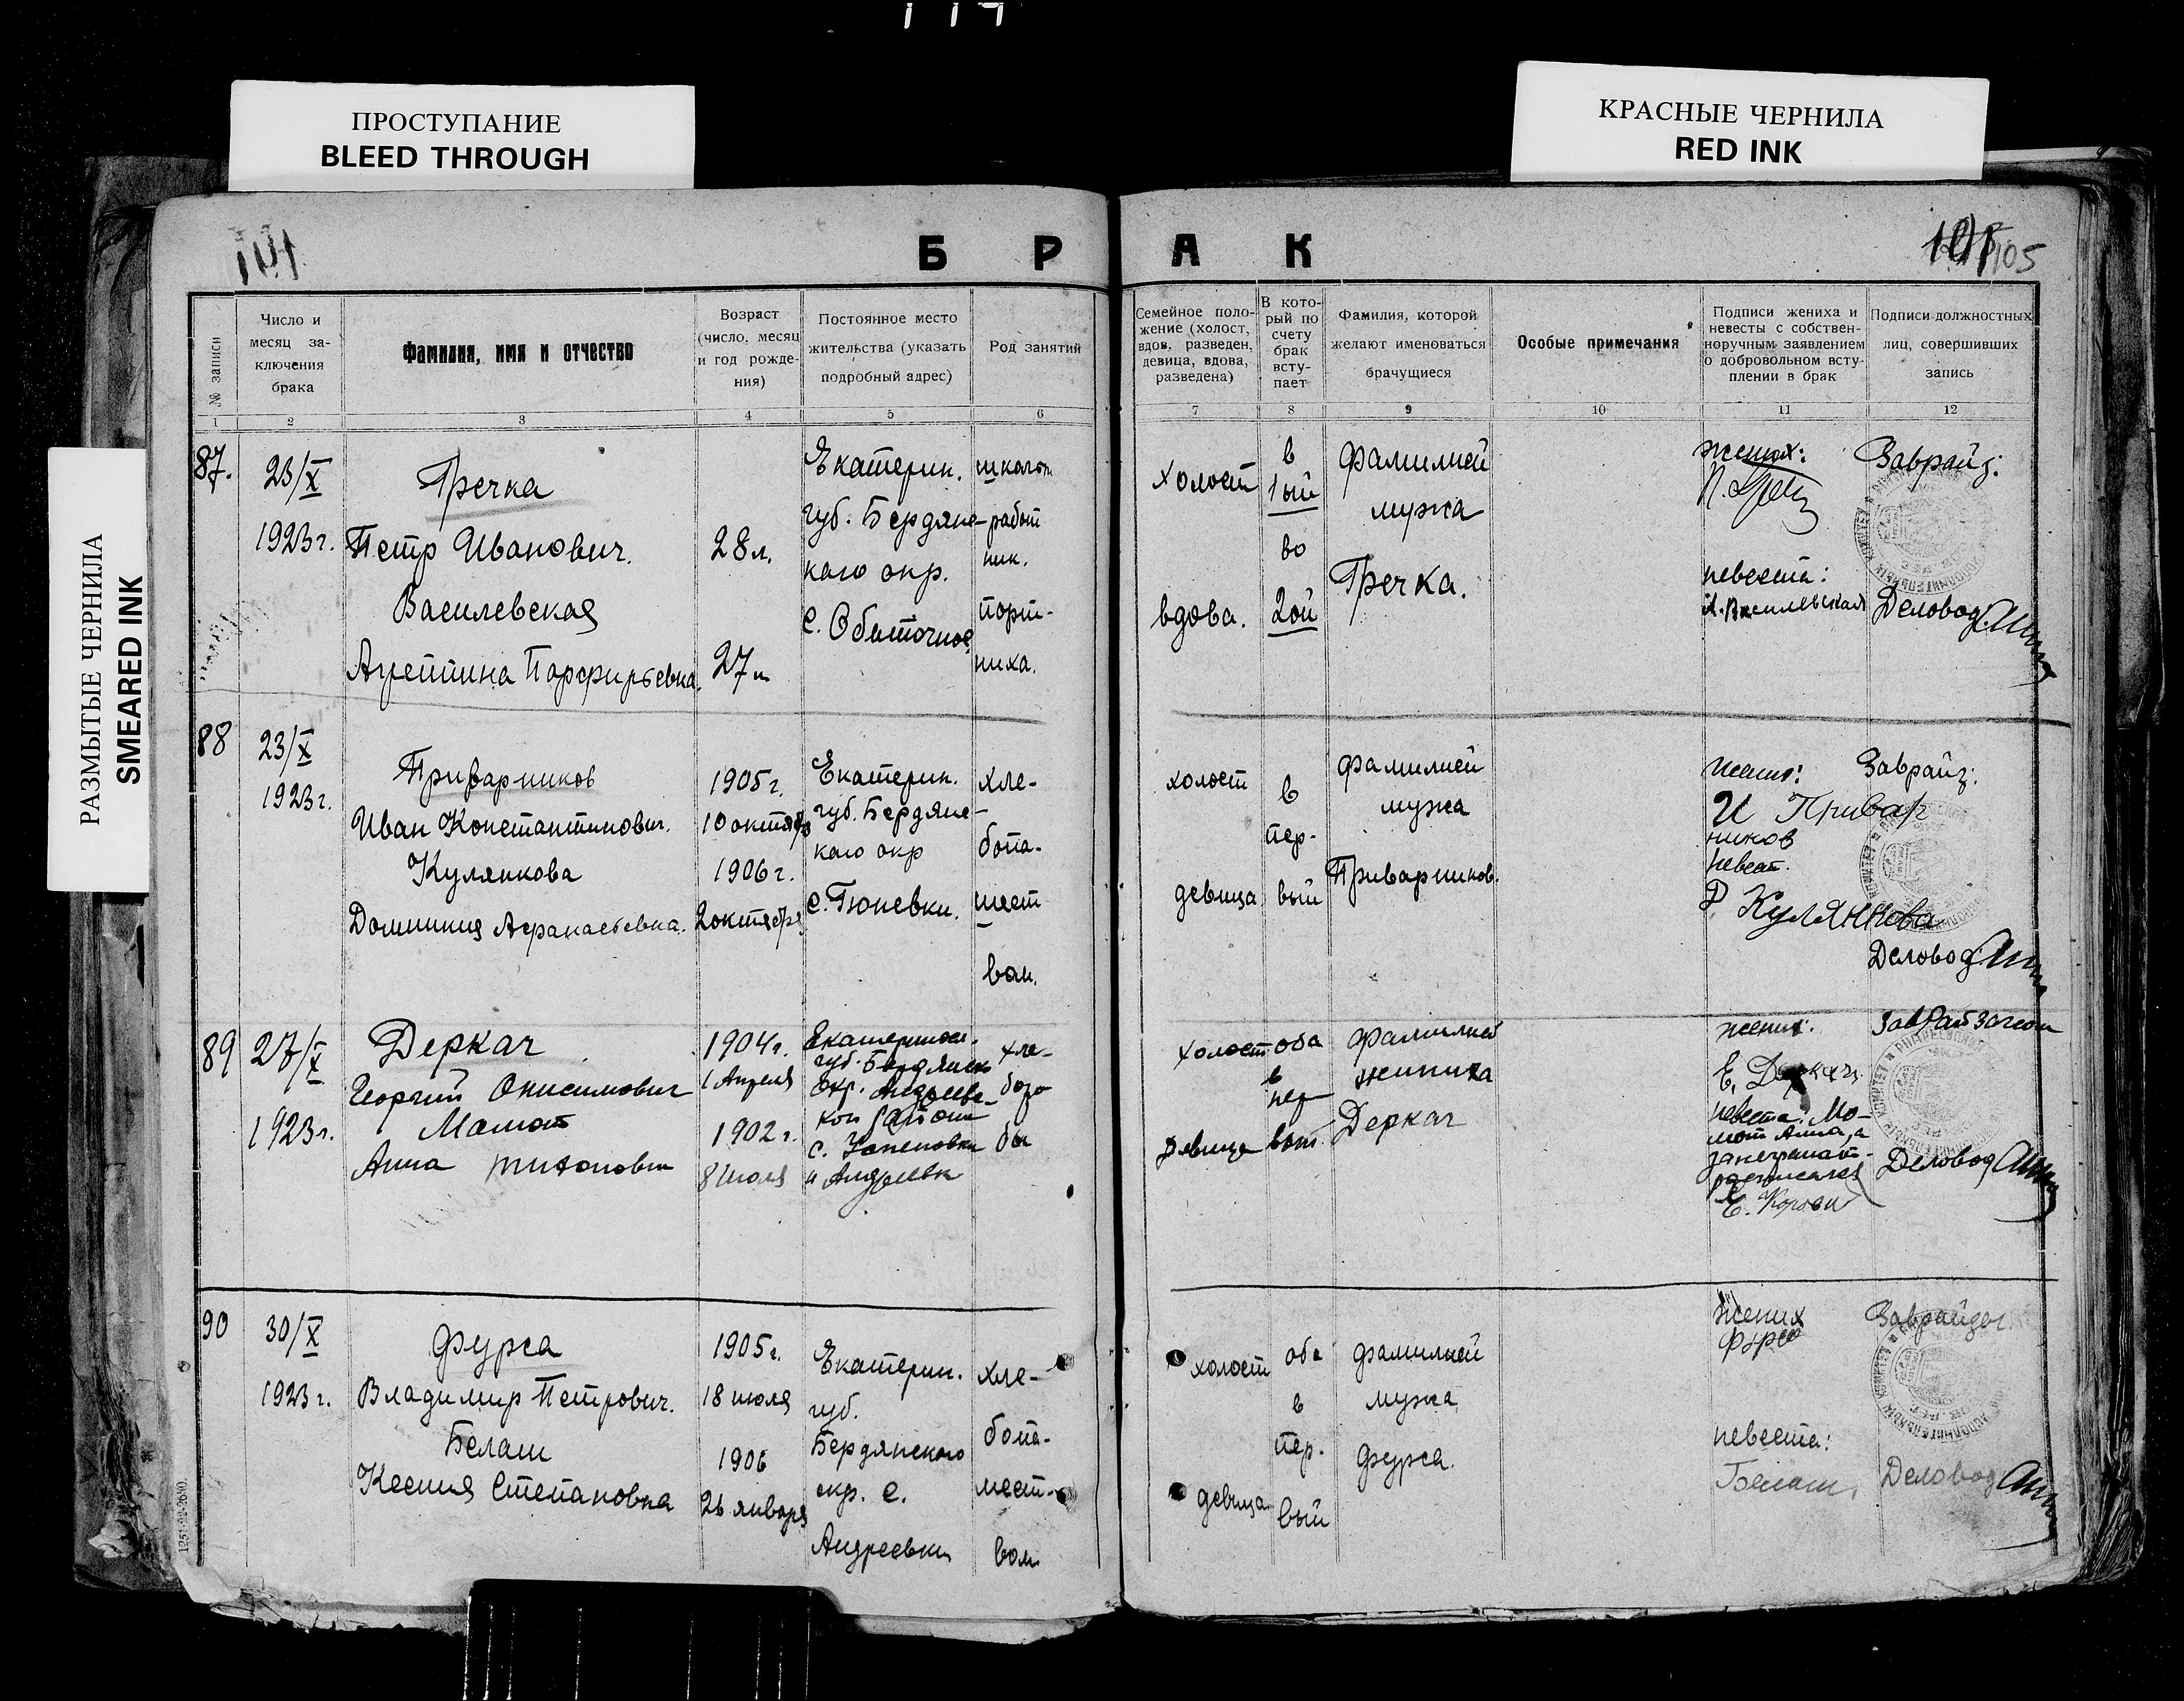 ПРОСТУПАНИЕ
BLEED THROUGH
КРАСНЫЕ ЧЕРНИЛА
RED INK
РАЗМЫТЫЕ ЧЕРНИЛА
SMEARED INK
Б Р А К
105
№ записи
Число и
месяц за-
ключения
брака
Фамилия, имя и отчество
Возраст
(число, месяц
и год рожде-
ния)
Постоянное место
жительства (указать
подробный адрес)
Род занятий
Семейное поло-
жение (холост,
вдов, разведен,
девица, вдова,
разведена)
В кото-
рый по
счету
брак
всту-
пает
Фамилия, которой
желают именоваться
брачущиеся
Особые примечания
Подписи жениха и
невесты с собствен-
норучным заявлением
о добровольном всту-
плении в брак
Подписи должностных
лиц, совершивших
запись
1 2 3 4 5 6 7 8 9 10 11 12
87.
23/X
1923 г.
Гречка
Петр Иванович.
Василевская
Порфирьевна.
28 л.
27 л
Екатерин.
губ. Бердянс-
каго окр.
с. Обиточное
школьн
работ
ник.
порт-
ниха.
холост
вдова.
в
1ый
во
2ой
фамилией
мужа
Гречка.
жених:
невеста:
Василевская
Заврайз:
Деловод
88
23/X
1923 г.
Приварников
Иван Константинович.
Кулянкова
Домникия Афанасьевна.
1905 г.
10 октября
1906 г.
2 октября
Екатерин.
губ. Бердянс-
каго окр
с. Гюневки.
хле-
бопа-
шест
вом.
холост
девица
в
пер-
вый
фамилией
мужа
Приварников.
жених:
И Привар
ников
невест.
Кулянкова
Заврайз:
Деловод
89
27/X
1923 г.
Деркач
Георгий Онисимович
Мамот
Анна
1904 г.
1 Апреля
1902 г.
8 июля
губ. Бердянск
окр. Андреевс-
хле-
боро
бы
холост
девица
оба
в
пер
вый
фамилией
жениха
Деркач
жених:
Деркач
невеста: Мо-
мот Анна, а
за неграмот-
расписался
Завройзагсом
Деловод
90
30/X
1923 г.
Фурса
Владимир Петрович.
Белаш
Ксения Степановна
1905 г.
18 июля
1906
26 января
Екатерин.
губ.
Бердянского
окр. с.
Андреевки
хле-
бопа-
шест-
вом
холост
девица
оба
в
пер.
вый
фамилией
мужа
Фурса.
жених
Фурса
невеста:
Белаш.
Деловод